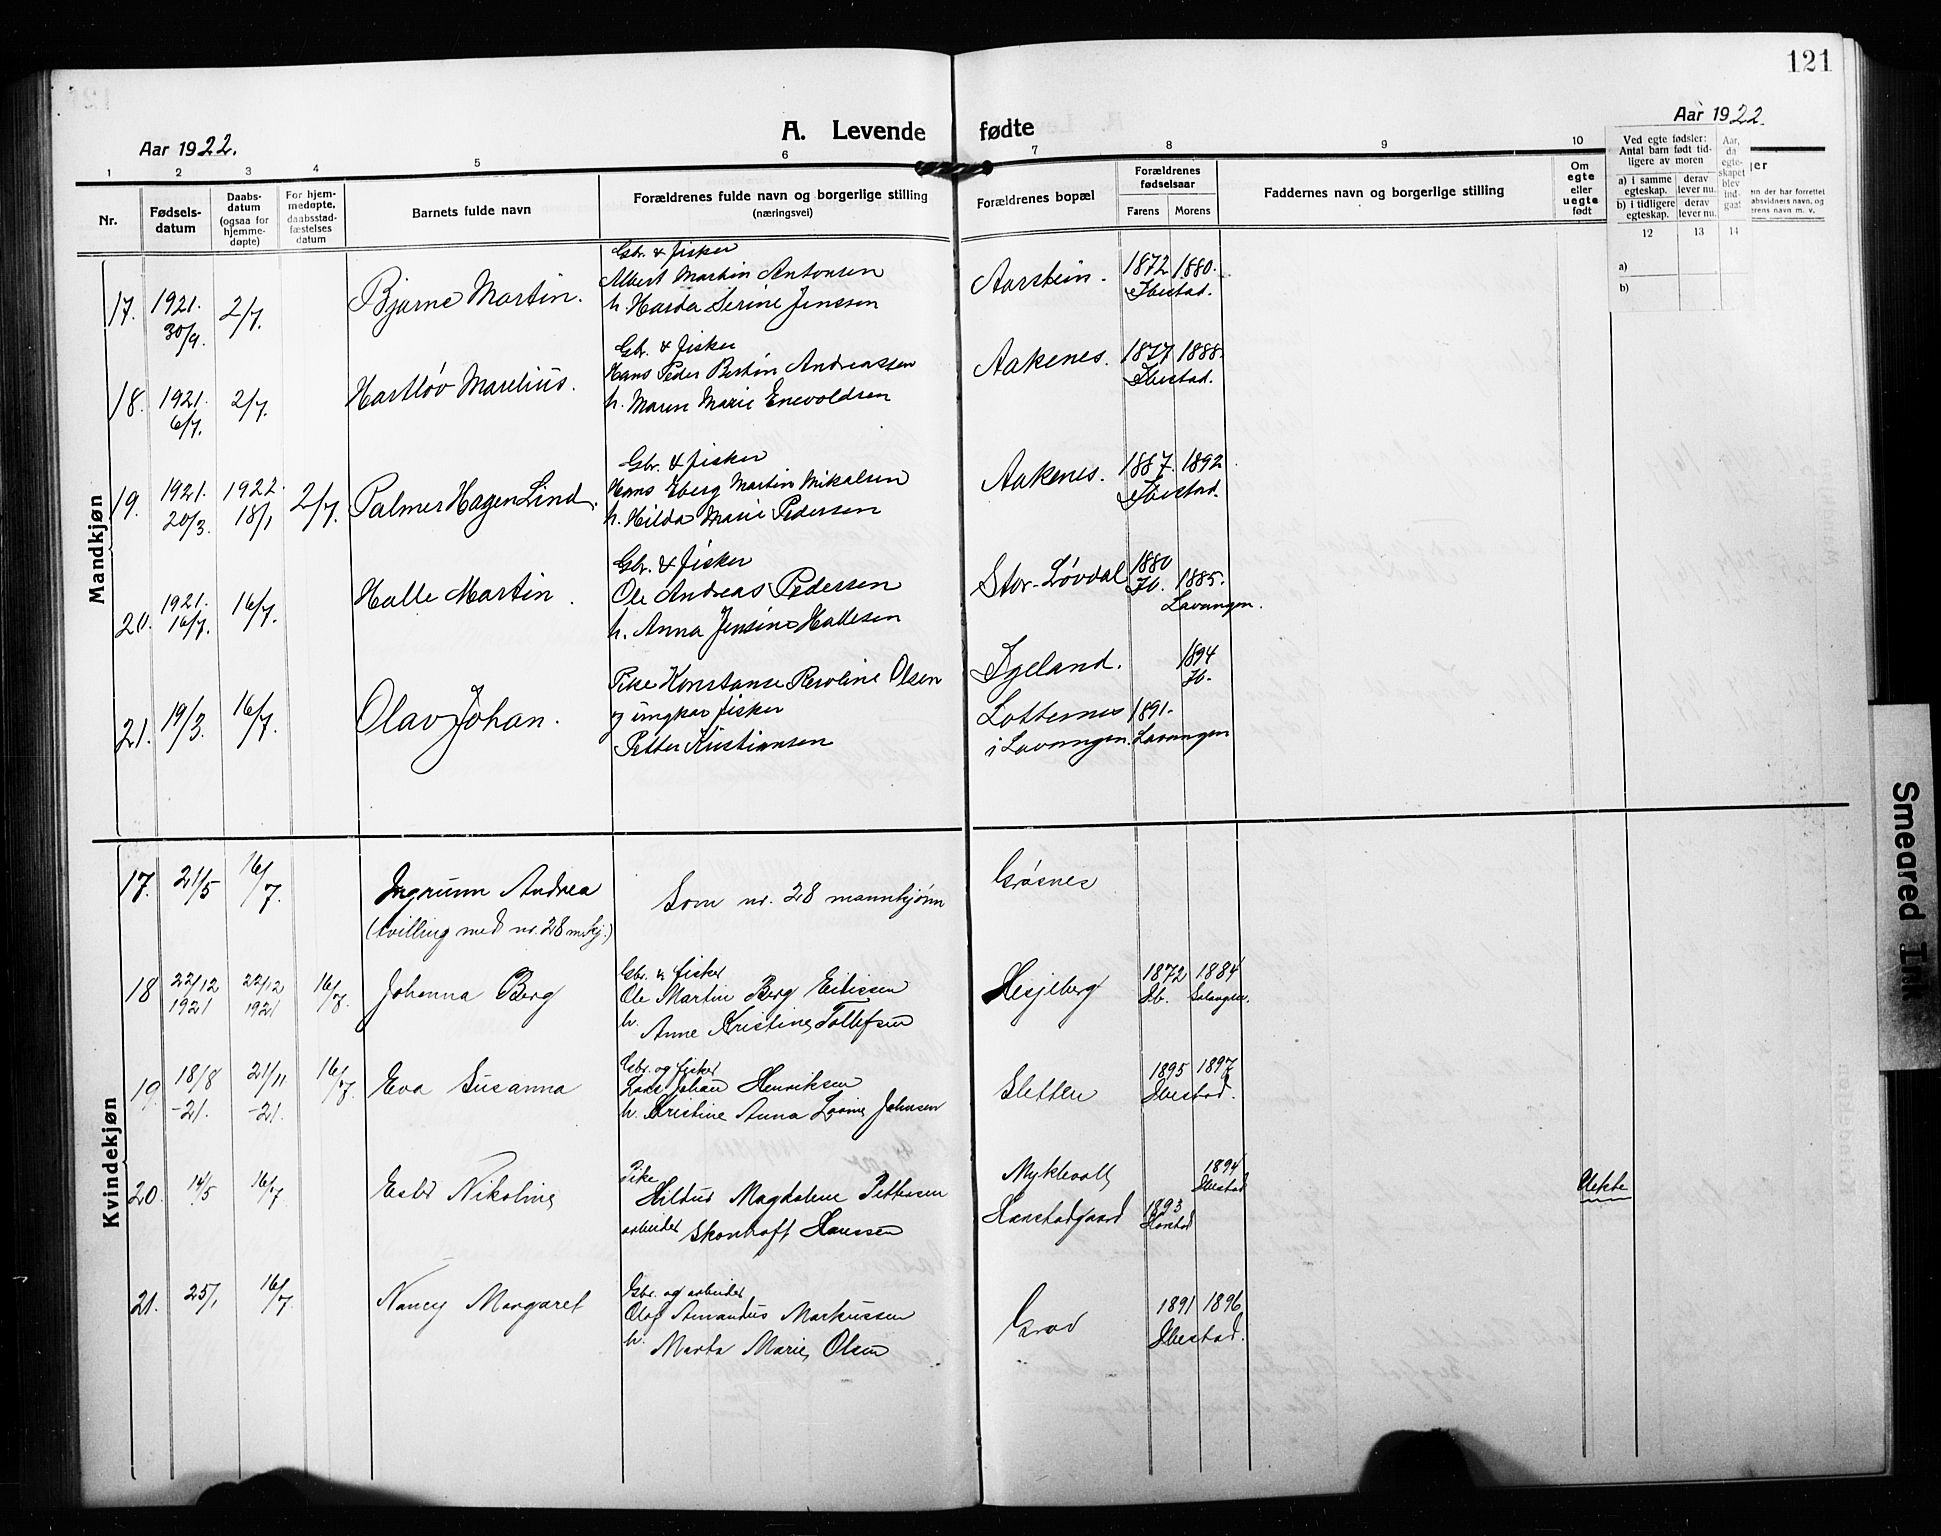 121
Aar 1922.
A. Levende fødte
Aar 1922.
1 2 3 4 5 6 7 8 9 10
Nr.
Fødsels-
datum
Daabs-
datum
(ogsaa for
hjemme-
døpte)
For hjem-
medøpte,
daabsstad-
fæstelses
datum
Barnets fulde navn
Forældrenes fulde navn og borgerlige stilling
(næringsvei)
Forældrenes bopæl
Forældrenes
fødselsaar
Farens Morens
Faddernes navn og borgerlige stilling
Om
egte
eller
uegte
født
Ved egte fødsler:
Antal barn født tid-
ligere av moren
a) i samme
egteskap.
derav
lever nu.
b) i tidligere
egteskap.
derav
lever nu.
Aar,
da
egte-
skapet
blev
ind-
gaat
12 13 14
a)
b)
Mandkjøn
17. 1921. 30/9. 2/7. Bjarne Martin.
Gbr. & fisker
Albert Martin Antonsen
h. Harda Serine Jenssen
Aarstein. 1872 1880.
Ibestad.
18. 1921. 6/7. 2/7. Hartløv Marelius.
Gbr. & fisker
Hans Peder Bertin Andreassen
h. Maren Marie Enevoldsen
Aakenes. 1877 1888.
Ibestad.
19. 1921. 20/3. 1922. 18/1 2/7. Palmer Hagen Lind.
Gbr. & fisker
Hans Eberg Martin Mikalsen
h. Hilda Marie Pedersen
Aakenes. 1887. 1892.
Ibestad.
20. 1921. 16/7. 16/7. Halle Martin.
Gbr. & fisker
Ole Andreas Pedersen
h. Anna Jensine Hallesen
Stor-Løvdal 1880 Ib. 1885. Lavangen.
21. 19/3. 16/7. Olav Johan.
Pike Konstanse Karoline Olsen
og ungkar fisker
Petter Kristiansen
Igeland. 1894 Ib.
Lotternes 1891.
i Lavangen. Lavangen
Kvindekjøn
17. 21/5 16/7. Ingrunn Andrea
(tvilling med nr. 28 m.kj.)
Som nr. 28 mannkjønn
Gråsnes
18 22/12 1921 22/12 1921 16/7. Johanna Berg
Gbr. & fisker
Ole Martin Berg Eidissen
h. Anne Kristine Tollefsen
Hesjeberg 1872 Ib. 1884 Salangen.
19. 18/8 -21. 21/11 -21. 16/7. Eva Susanna
Gbr. og fisker
Lars Johan Henriksen
h. Kristine Anna Lovine Johnsen
Sletten 1895 1897
Ibestad.
20. 14/5 16/7 Nikoline
Pike
Hildur Magdalene Pettersen
arbeider Skonhoft Hanssen
Myklevoll 1894 Ibestad
Harstadgaard 1893 Harstad
Uekte
21. 25/1 16/7. Nancy Margaret
Gbr. og arbeider
Olaf Amandus Markussen
h. Marta Marie Olsen
Grov 1891 1896
Ibestad.
Smeared Ink